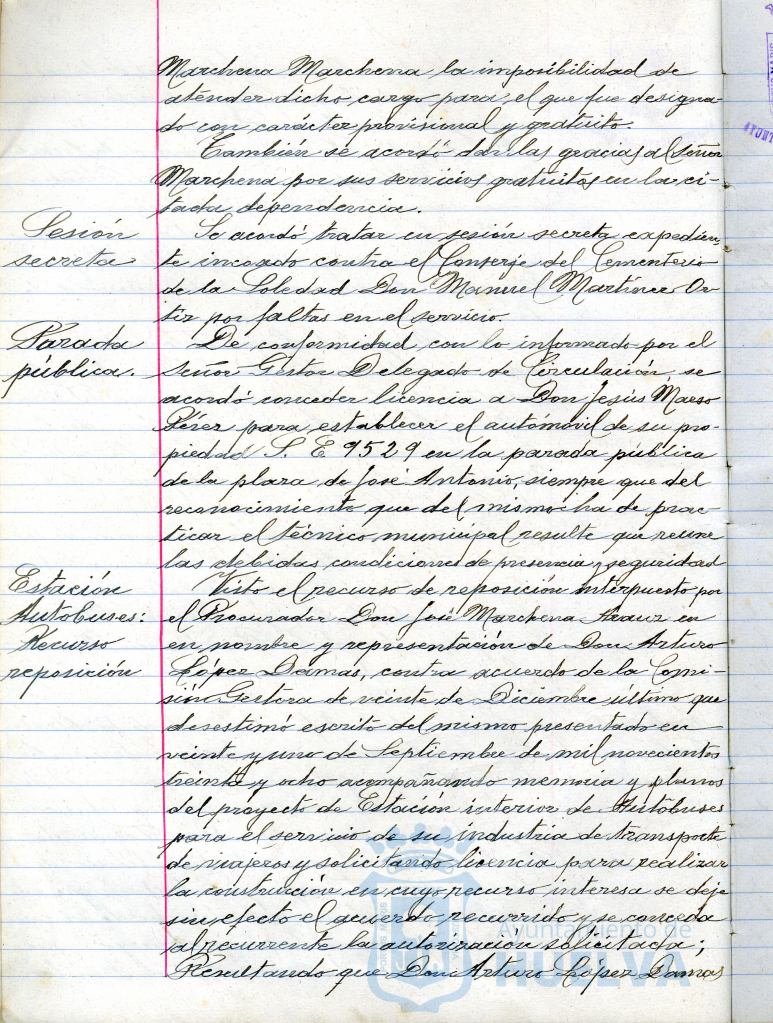 Marchena Marchena la imposibilidad de
atender dicho cargo para el que fue designa-
do con carácter provisional y gratuito.
También se acordó dar las gracias al Señor
Marchena por sus servicios gratuitos en la ci-
tada dependencia.
Sesión
secreta
Se acordó tratar en sesión secreta expedien-
te incoado contra el Conserje del Cementerio
de la Soledad Don Manuel Martínez Or-
tiz por faltas en el servicio.
Parada
pública.
De conformidad con lo informado por el
Señor Gestor Delegado de Circulación, se
acordó conceder licencia a Don Jesús Maeso
Pérez para establecer el automóvil de su pro-
piedad S. E 9529 en la parada pública
de la plaza de José Antonio, siempre que del
reconocimiento que del mismo ha de prac-
ticar el técnico municipal resulte que reune
las debidas condiciones de presencia y seguridad
Estación
Autobuses:
Recurso
reposición
Visto el recurso de reposición interpuesto por
el Procurador Don José Marchena Arauz en
en nombre y representación de Don Arturo
López Damas, contra acuerdo de la Comi-
sión Gestora de veinte de Diciembre último que
desestimó escrito del mismo presentado en
veinte y uno de Septiembre de mil novecientos
treinta y ocho acompañando memoria y planos
del proyecto de Estación interior de Autobuses
para el servicio de su industria de transporte
de viajeros y solicitando licencia para realizar
la construcción en cuyo recurso interesa se deje
sin efecto el acuerdo recurrido y se conceda
al recurrente la autorización solicitada;
Resultando que Don Arturo López Damas
Ayuntamiento de
HUELVA